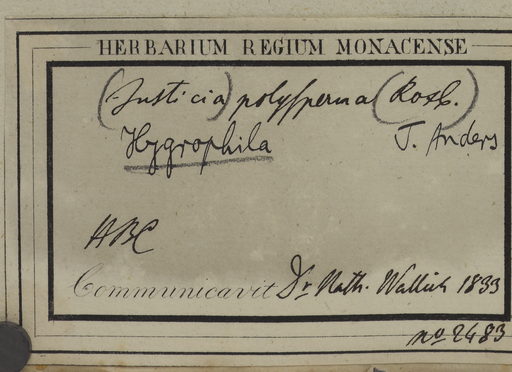 HERBARIUM REGIUM MONACENSE
(Justicia) polysperma (Roxb.
Hygrophila T. Anders
HBC
Communicavit Dr Nath. Wallich 1833
no 2483